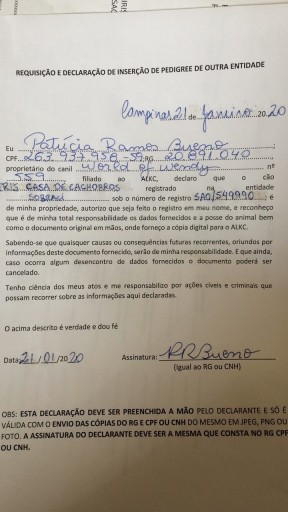 REQUISIÇÃO E DECLARAÇÃO DE INSERÇÃO DE PEDIGREE DE OUTRA ENTIDADE
Campinas 21 de Janeiro 20 20
Eu Patrícia Ramos Bueno
CPF 263.937.958-59 RG 20.891.040
proprietário do canil World of Wendy nº
559 filiado ao ALKC, declaro que o cão
IRIS CASA DE CACHORROS registrado na entidade
SOBRACI sob o número de registro SAO/549990 é
de minha propriedade, autorizo que seja feito o registro em meu nome, e reconheço
que é de minha total responsabilidade os dados fornecidos e a posse do animal bem
como o documento original em mãos, onde forneço a cópia digital para o ALKC.
Sabendo-se que quaisquer causas ou consequências futuras recorrentes, oriundos por
informações deste documento fornecido, serão de minha responsabilidade. E que ainda,
caso ocorra algum desencontro de dados fornecidos o documento poderá ser
cancelado.
Tenho ciência dos meus atos e me responsabilizo por ações cíveis e criminais que
possam recorrer sobre as informações aqui declaradas.
O acima descrito é verdade e dou fé
Data: 21/01/2020 Assinatura: PRBueno
(Igual ao RG ou CNH)
OBS: ESTA DECLARAÇÃO DEVE SER PREENCHIDA A MÃO PELO DECLARANTE E SÓ É
VÁLIDA COM O ENVIO DAS CÓPIAS DO RG E CPF OU CNH DO MESMO EM JPEG, PNG OU
FOTO. A ASSINATURA DO DECLARANTE DEVE SER A MESMA QUE CONSTA NO RG CPF
OU CNH.